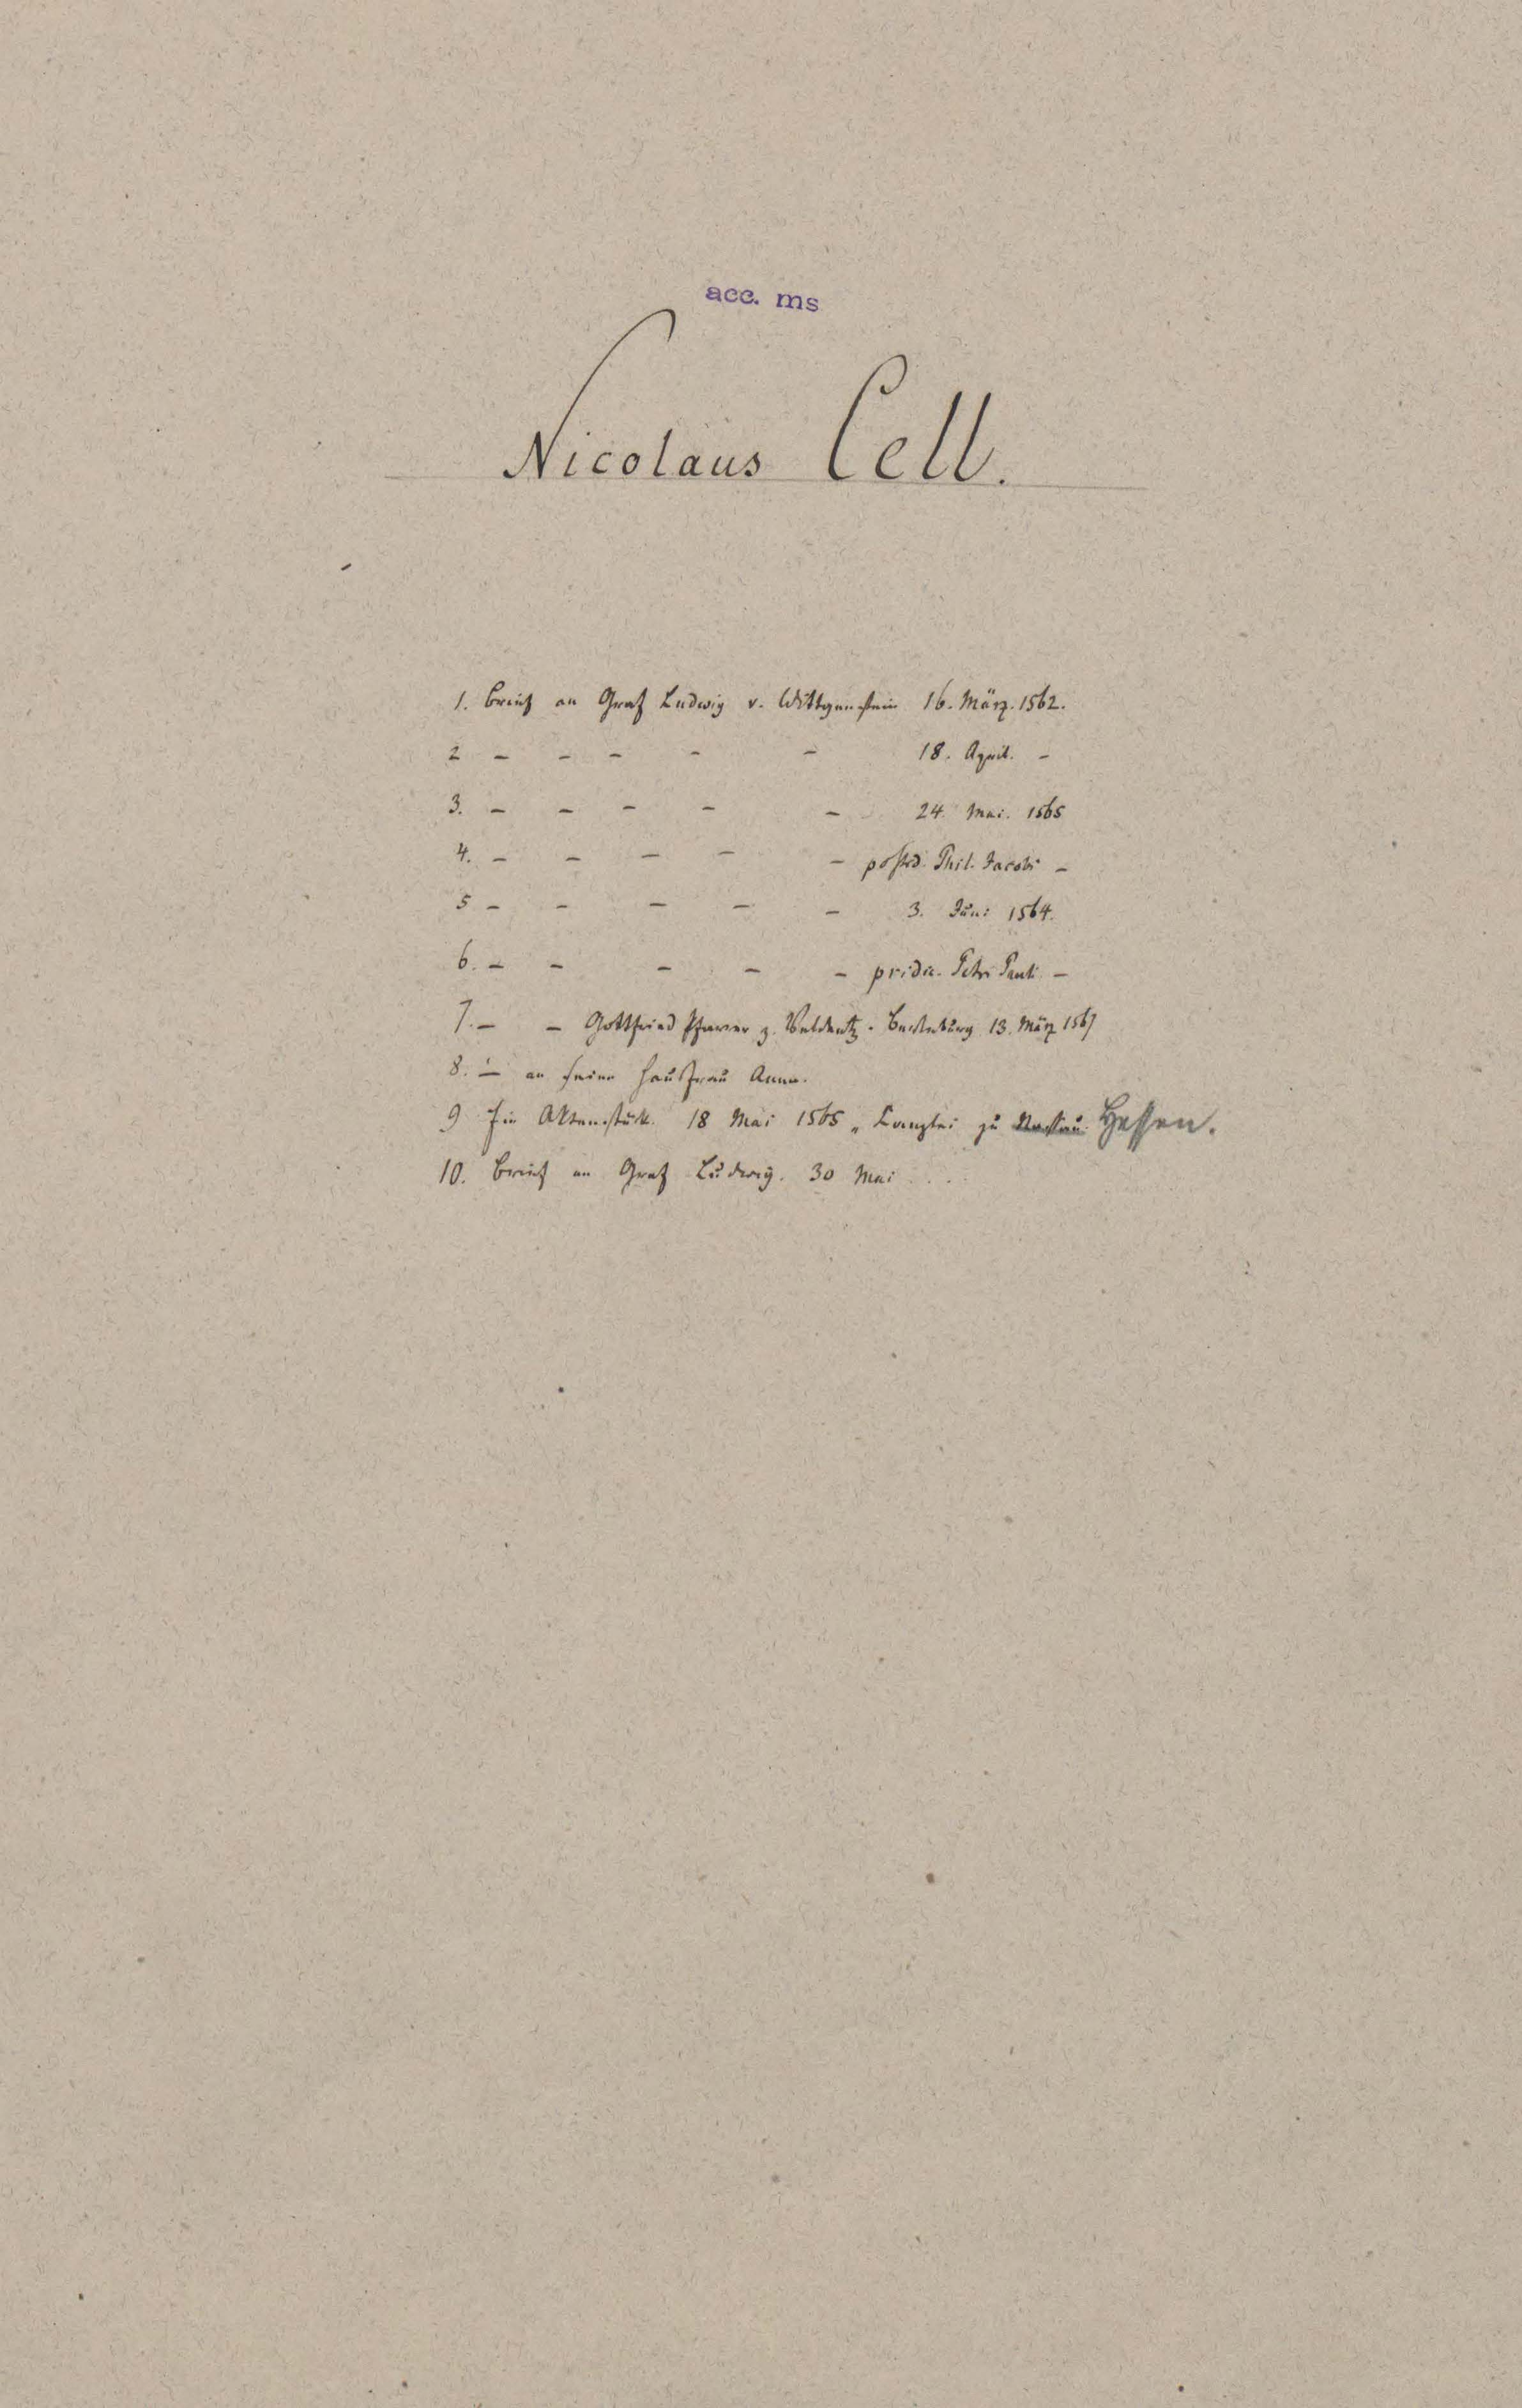 acc. ms
Nicolaus Cell.
1. Brief an Graf Ludwig v. Wittgenstein 16. März. 1562.
2 – – – – – 18. April. –
3. – – – – – 24. Mai. 1565
4. – – – – – postrid. Phil. Jacobi –
5 – – – – – 3. Juni 1564.
6. – – – – – pridie. Petri Pauli –
7. – – Gottfried Pfarrer z. Veldentz. Berleburg 13. März 1567
8. – an seine Hausfrau Anna.
9 Ein Aktenstück. 18 Mai 1565 „ Kanzlei zu Nassau Hessen.
10. Brief an Graf Ludwig. 30 Mai . . . .